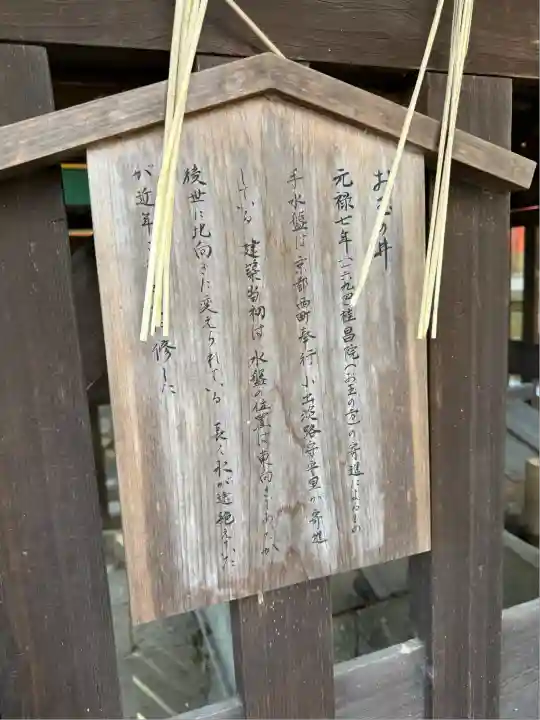 お玉の井
元禄七年(一六九四)桂昌院(お玉の方)の寄進によるもの
手水盤は京都西町奉行小出淡路守守里が寄進
している 建築当初は水盤の位置は東向きであったが、
後世に北向きに変えられている 長く水が途絶えていた
が近年 修した